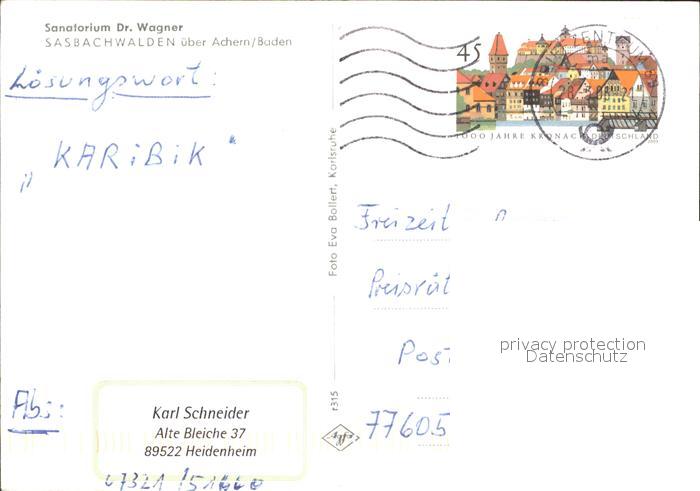 Sanatorium Dr. Wagner
SASBACHWALDEN über Achern/Baden
Lösungswort:
„KARiBiK"
Foto Eva Bollert, Karlsruhe
r315
Agfa
45
1000 JAHRE KRONACH DEUTSCHLAND
Freizeit
Preisrät
Post
77605
privacy protection
Datenschutz
Abs:
Karl Schneider
Alte Bleiche 37
89522 Heidenheim